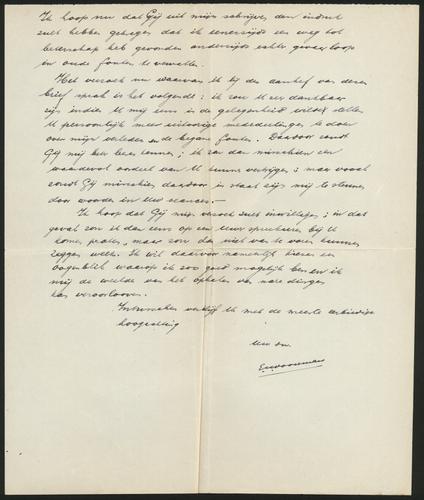 Ik hoop nu dat Gij uit mijn schrijven den indruk
zult hebben gekregen dat ik eenerzijds een weg tot
beterschap heb gevonden anderzijds echter gevaar loop
in oude fouten te vervallen.
Het verzoek nu waarvan ik bij den aanhef van dezen
brief sprak is het volgende: ik zou U zeer dankbaar
zijn indien U mij eens in de gelegenheid wilde stellen
U persoonlijk meer uitvoerige mededeelingen te doen
over mijn verleden en de begane fouten. Daardoor zoudt
Gij mij beter leeren kennen; ik zou dan misschien een
waardevol oordeel van U kunnen verkrijgen; maar vooral
zoudt Gij misschien daardoor in staat zijn mij te steunen
door woorden in Uw seances.—
Ik hoop dat Gij mijn verzoek zult inwilligen; in dat
geval zou ik dan eens op een Uwer spreekuren bij U
komen praten, maar zou dan niet van te voren kunnen
zeggen welk. Ik wil daarvoor namelijk kiezen een
oogenblik waarop ik zoo goed mogelijk ben en ik
mij de weelde van het ophalen van nare dingen
kan veroorloven.
Inmiddels verblijf ik met de meeste eerbiedige
hoogachting
Uw dw.